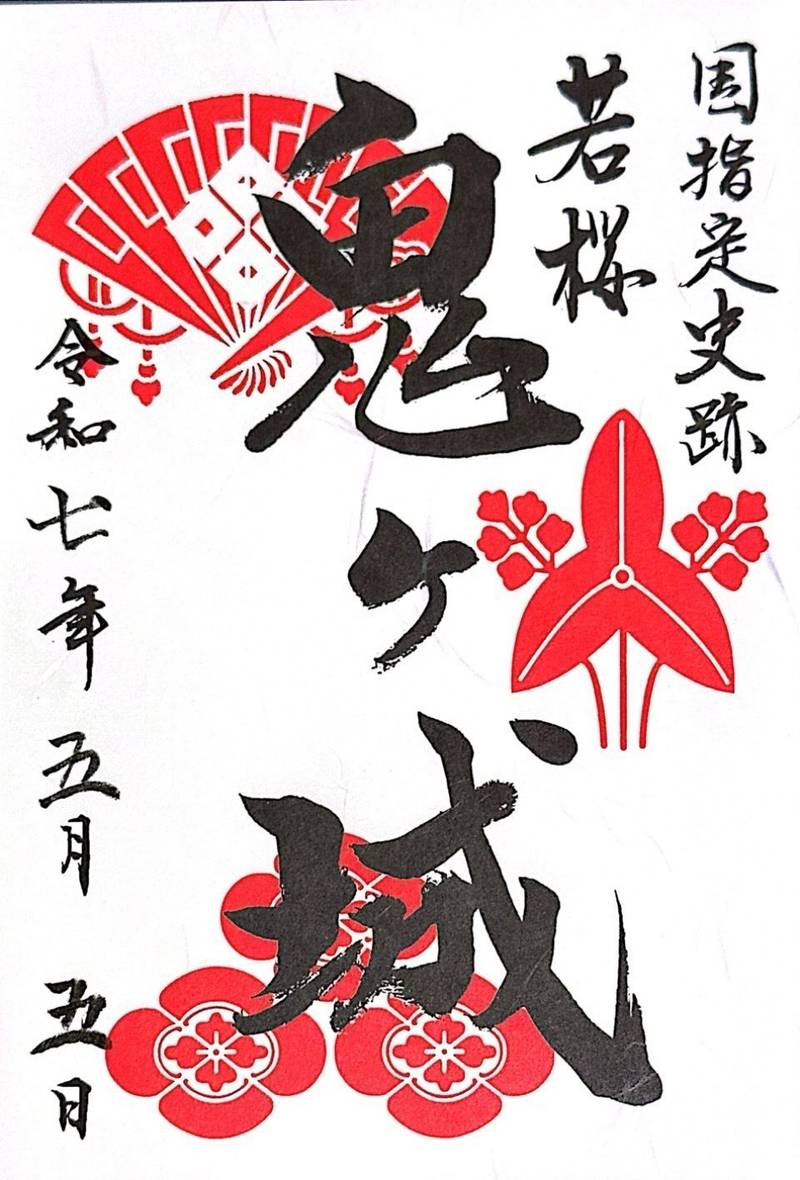 国指定史跡
若桜
鬼ヶ城
令和七年 五月 五日